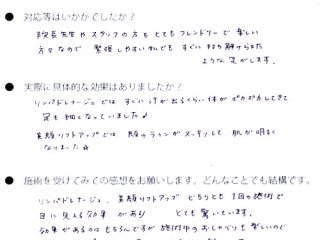 ● 対応等はいかがでしたか？
院長先生や スタッフの方も とても フレンドリーで 楽しい
方々なので 緊張しやすい私でも すぐに 打ち解けられた
ような 気がします。
● 実際に具体的な効果はありましたか？
リンパドレナージュでは すごい汗が出るくらい体が ポカポカしてきて
足も細くなっていました♪
美顔リフトアップでは、顔のラインがスッキリして 肌が明るく
なりました☆
● 施術を受けてみての感想をお願いします。どんなことでも結構です。
リンパドレナージュ、美顔リフトアップ どちらとも 1回の施術で
目に見える効果があり とても驚いています。
効果があるのはもちろんですが 施術中のおしゃべりも楽しいので